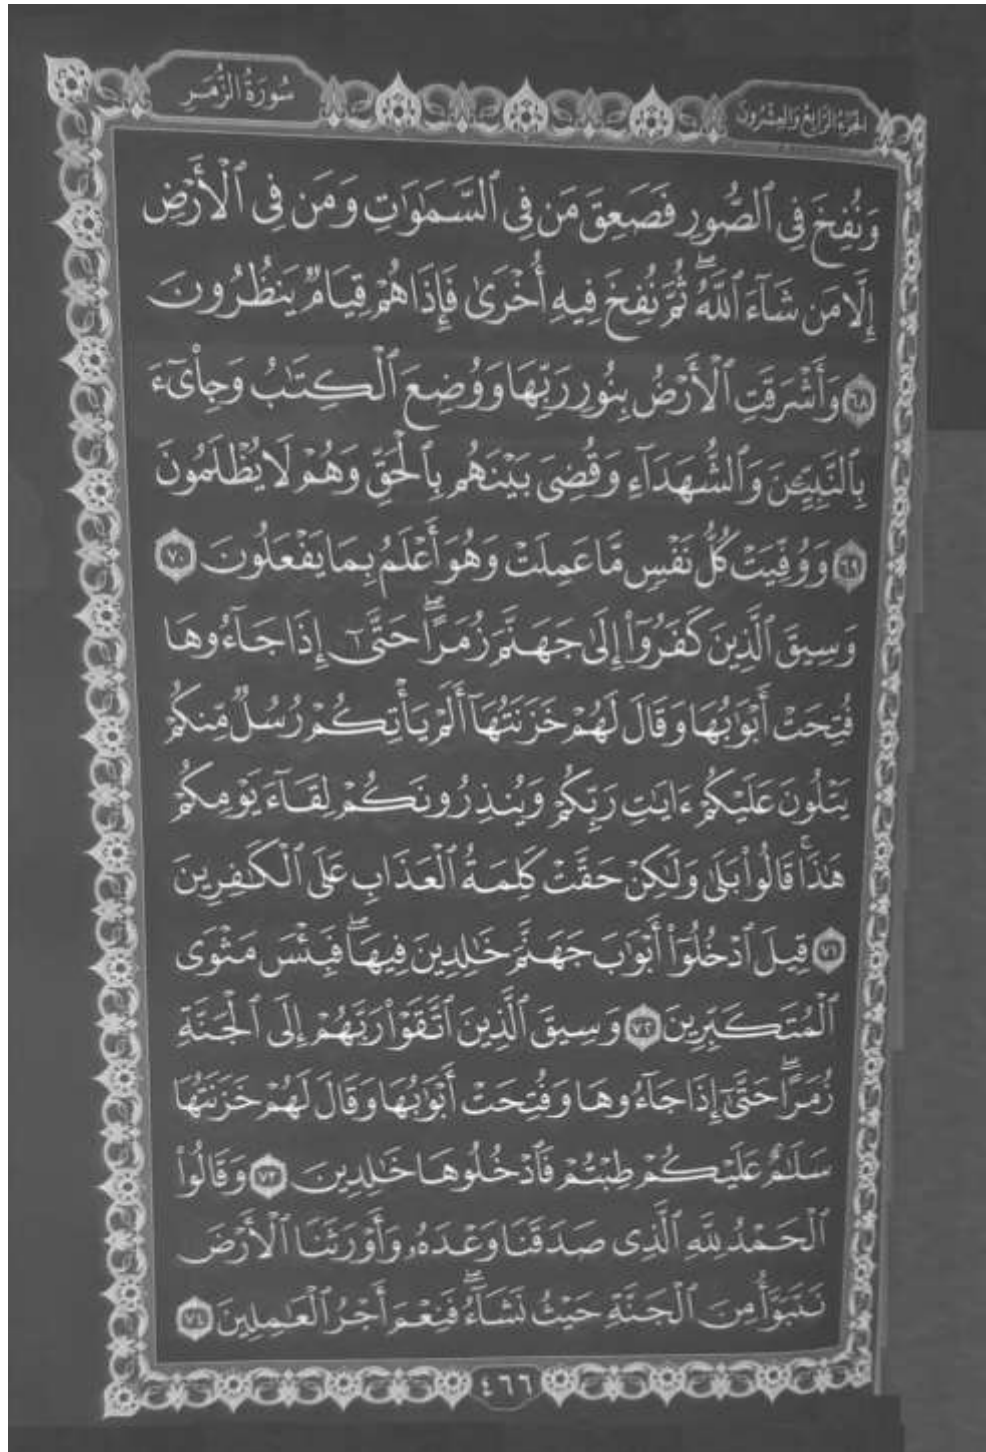 الجزء الرابع والعشرون
سُورَةُ الزُّمَرِ
وَنُفِخَ فِي ٱلصُّورِ فَصَعِقَ مَن فِي ٱلسَّمَٰوَٰتِ وَمَن فِي ٱلْأَرْضِ
إِلَّا مَن شَآءَ ٱللَّهُ ۖ ثُمَّ نُفِخَ فِيهِ أُخْرَىٰ فَإِذَا هُمْ قِيَامٌ يَنظُرُونَ
٦٨ وَأَشْرَقَتِ ٱلْأَرْضُ بِنُورِ رَبِّهَا وَوُضِعَ ٱلْكِتَٰبُ وَجِا۟ىٓءَ
بِٱلنَّبِيِّـۧنَ وَٱلشُّهَدَآءِ وَقُضِىَ بَيْنَهُم بِٱلْحَقِّ وَهُمْ لَا يُظْلَمُونَ
٦٩ وَوُفِّيَتْ كُلُّ نَفْسٍ مَّا عَمِلَتْ وَهُوَ أَعْلَمُ بِمَا يَفْعَلُونَ ٧٠
وَسِيقَ ٱلَّذِينَ كَفَرُوٓا۟ إِلَىٰ جَهَنَّمَ زُمَرًا ۖ حَتَّىٰٓ إِذَا جَآءُوهَا
فُتِحَتْ أَبْوَٰبُهَا وَقَالَ لَهُمْ خَزَنَتُهَآ أَلَمْ يَأْتِكُمْ رُسُلٌ مِّنكُمْ
يَتْلُونَ عَلَيْكُمْ ءَايَٰتِ رَبِّكُمْ وَيُنذِرُونَكُمْ لِقَآءَ يَوْمِكُمْ
هَٰذَا ۚ قَالُوا۟ بَلَىٰ وَلَٰكِنْ حَقَّتْ كَلِمَةُ ٱلْعَذَابِ عَلَى ٱلْكَٰفِرِينَ
٧١ قِيلَ ٱدْخُلُوٓا۟ أَبْوَٰبَ جَهَنَّمَ خَٰلِدِينَ فِيهَا ۖ فَبِئْسَ مَثْوَى
ٱلْمُتَكَبِّرِينَ ٧٢ وَسِيقَ ٱلَّذِينَ ٱتَّقَوْا۟ رَبَّهُمْ إِلَى ٱلْجَنَّةِ
زُمَرًا ۖ حَتَّىٰٓ إِذَا جَآءُوهَا وَفُتِحَتْ أَبْوَٰبُهَا وَقَالَ لَهُمْ خَزَنَتُهَا
سَلَٰمٌ عَلَيْكُمْ طِبْتُمْ فَٱدْخُلُوهَا خَٰلِدِينَ ٧٣ وَقَالُوا۟
ٱلْحَمْدُ لِلَّهِ ٱلَّذِى صَدَقَنَا وَعْدَهُۥ وَأَوْرَثَنَا ٱلْأَرْضَ
نَتَبَوَّأُ مِنَ ٱلْجَنَّةِ حَيْثُ نَشَآءُ ۖ فَنِعْمَ أَجْرُ ٱلْعَٰمِلِينَ ٧٤
٤٦٦